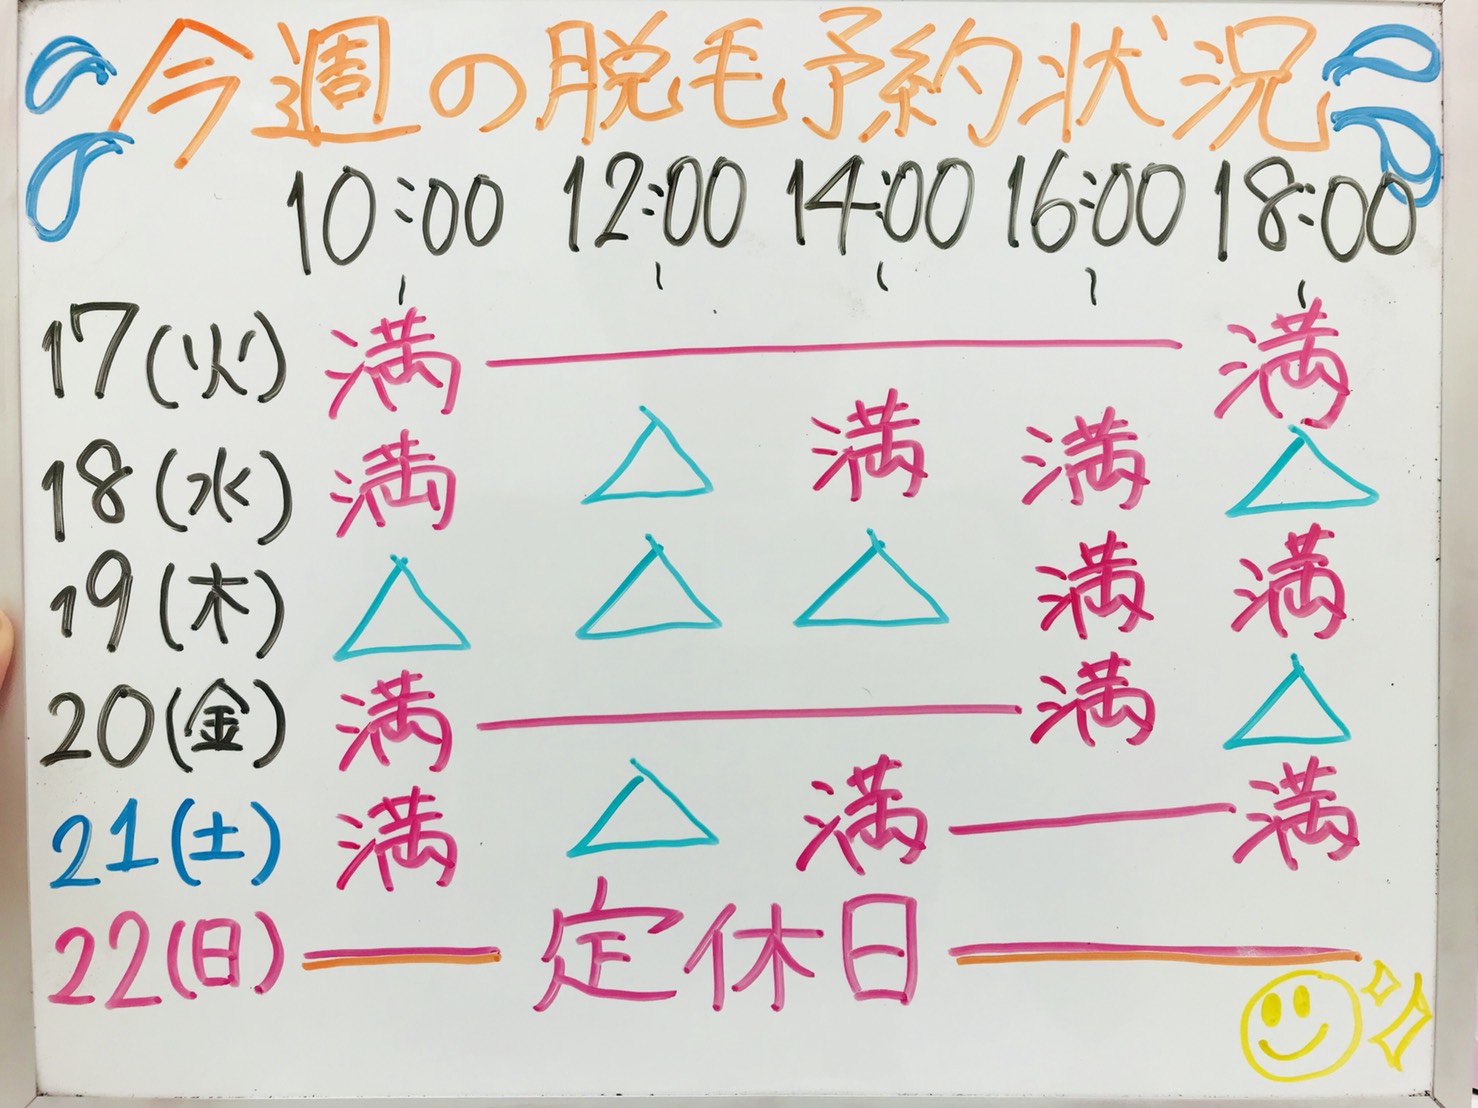 今週の脱毛予約状況
10:00 12:00 14:00 16:00 18:00
17(火) 満 ― 満
18(水) 満 △ 満 満 △
19(木) △ △ △ 満 満
20(金) 満 ― 満 △
21(土) 満 △ 満 ― 満
22(日) ― 定休日 ―